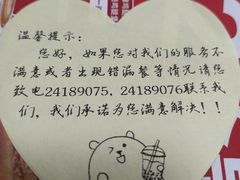 温馨提示：
您好，如果您对我们的服务不
满意或者出现错漏餐等情况请您
致电24189075、24189076联系我
们，我们承诺为您满意解决！！